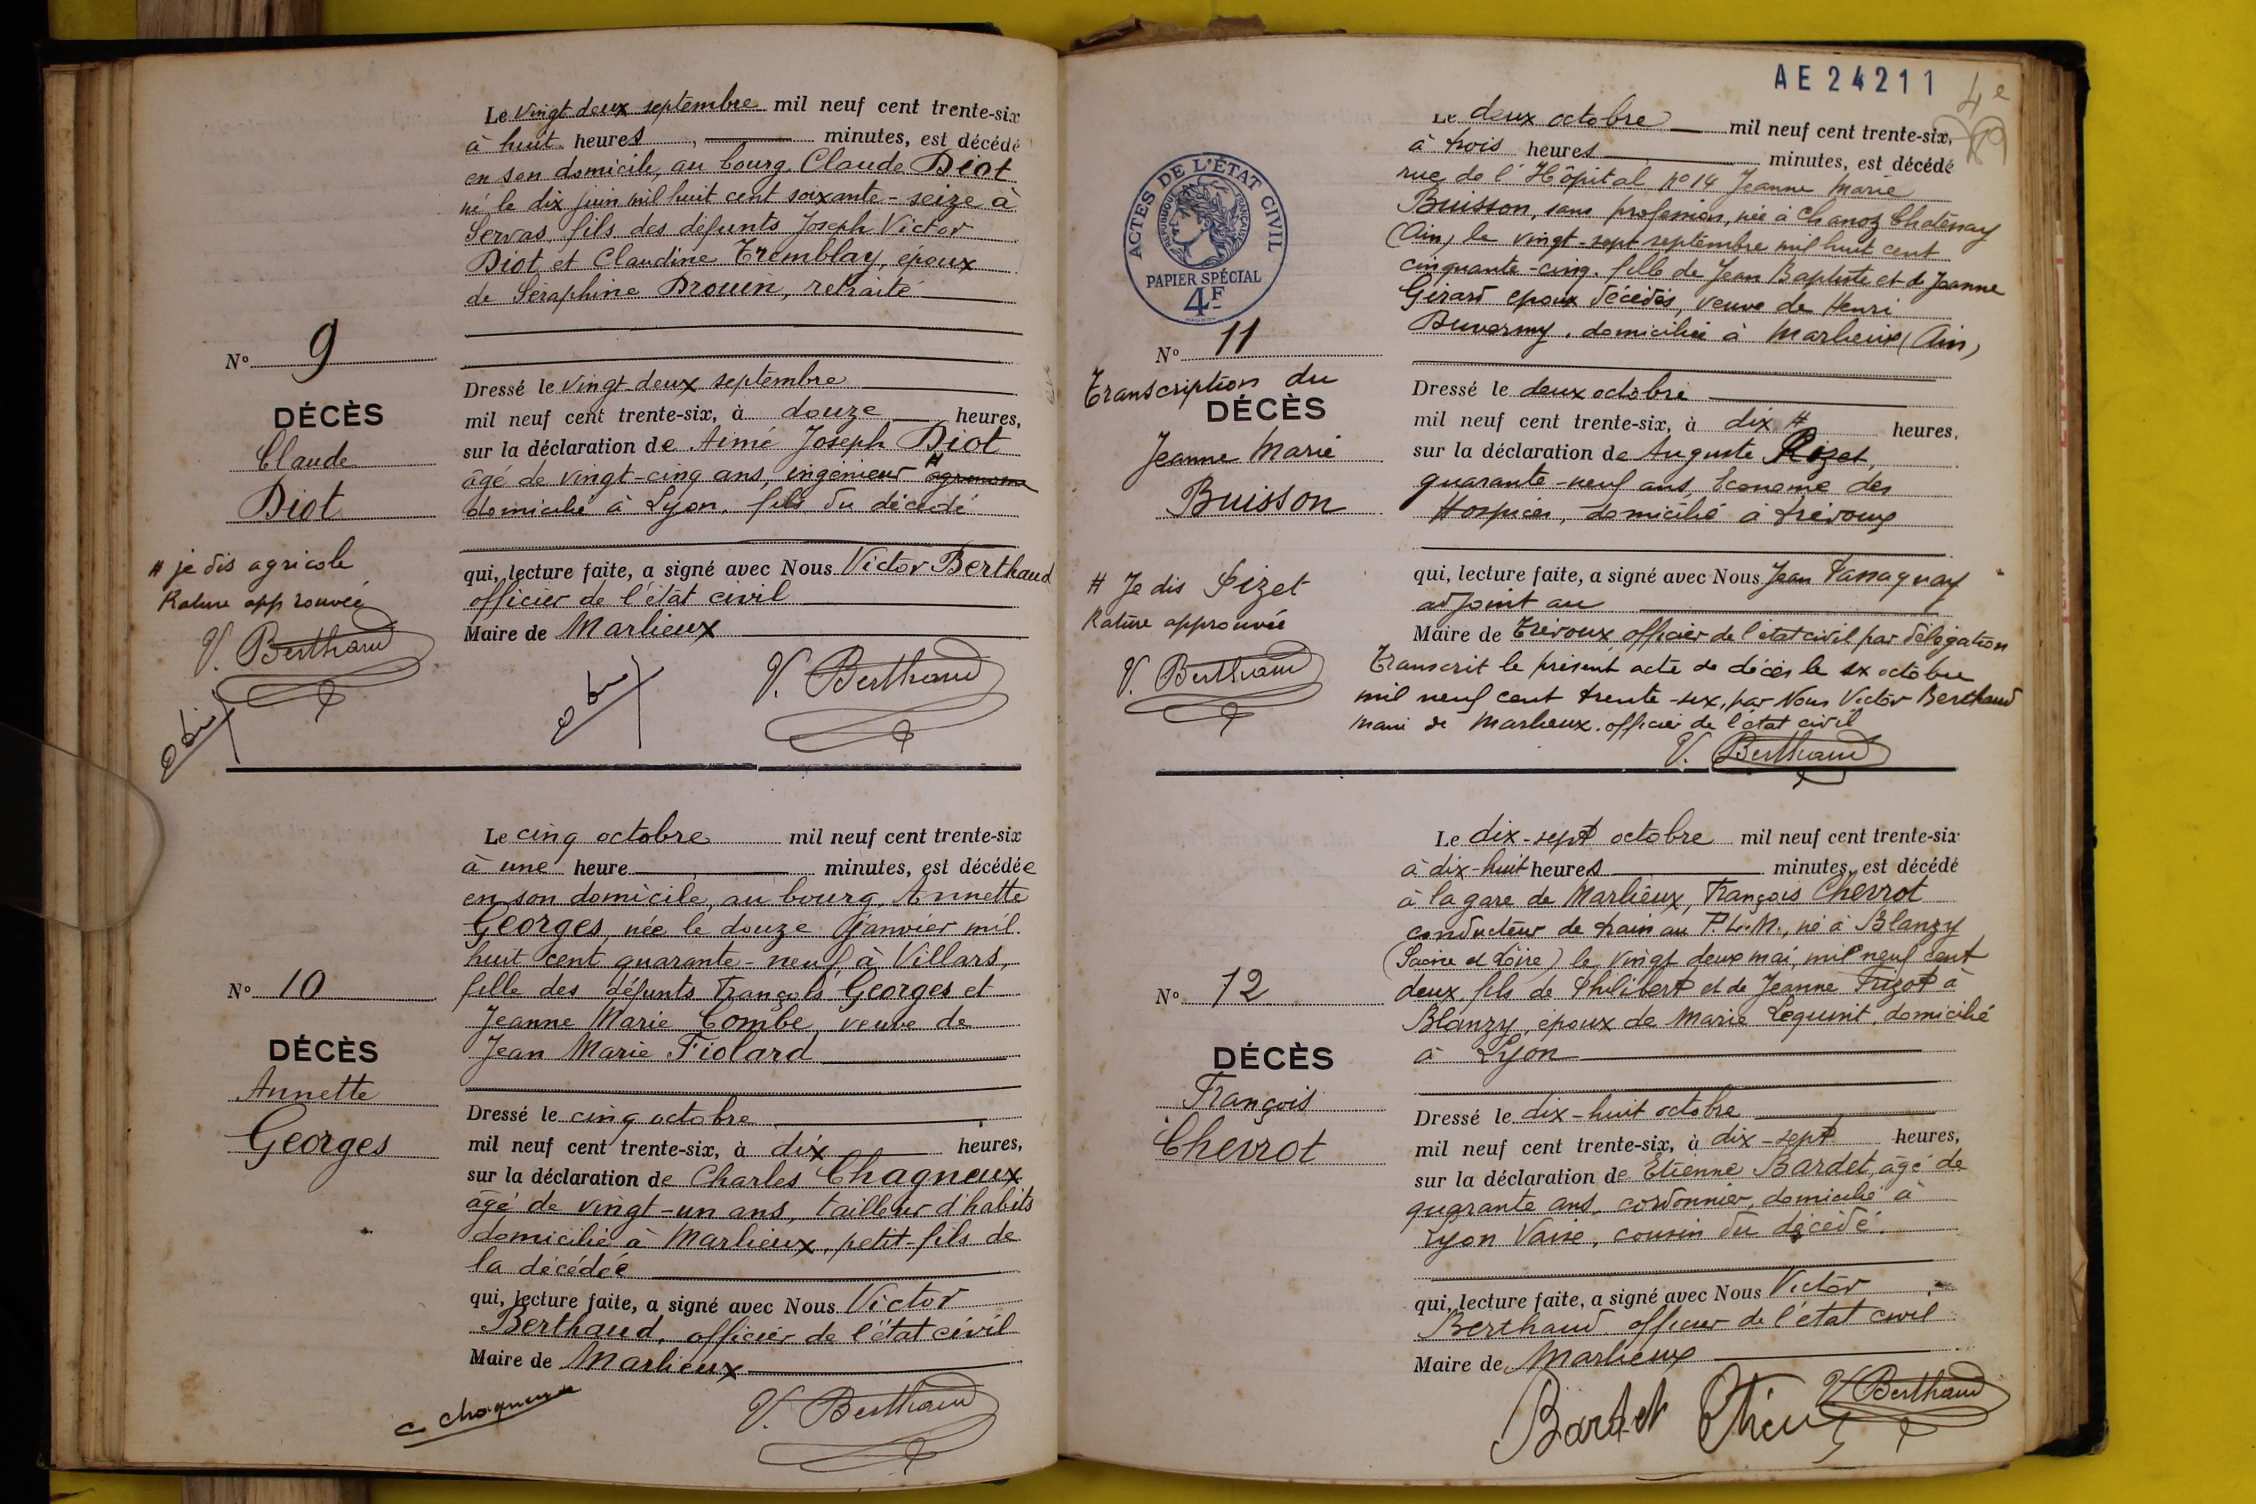 Le vingt deux septembre mil neuf cent trente-six
à huit heures, minutes, est décédé
en son domicile, au bourg, Claude Diot
né le dix juin mil huit cent soixante-seize à
Servas, fils des défunts Joseph Victor
Diot et Claudine Tremblay, époux
de Séraphine Drouin, retraité
N° 9
DÉCÈS
Claude
Diot
Dressé le vingt-deux septembre
mil neuf cent trente-six, à douze heures,
sur la déclaration de Aimé Joseph Diot
âgé de vingt-cinq ans, ingénieur # agronome
domicilié à Lyon, fils du décédé
# je dis agricole
Rature approuvée
V. Berthaud
qui, lecture faite, a signé avec Nous Victor Berthaud
officier de l'état civil
Maire de Marlieux
V. Berthaud
Le cinq octobre mil neuf cent trente-six
à une heure, minutes, est décédée
en son domicile, au bourg, Annette
Georges, née le douze janvier mil
huit cent quarante-neuf à Villars,
fille des défunts François Georges et
Jeanne Marie Combe, veuve de
Jean Marie Fiolard
N° 10
DÉCÈS
Annette
Georges
Dressé le cinq octobre
mil neuf cent trente-six, à dix heures,
sur la déclaration de Charles Chagneux
âgé de vingt-un ans, tailleur d'habits
domicilié à Marlieux, petit-fils de
la décédée
qui, lecture faite, a signé avec Nous Victor
Berthaud, officier de l'état civil
Maire de Marlieux
C Chagneux
V. Berthaud
AE 24211
4e
Le deux octobre mil neuf cent trente-six,
à trois heures minutes, est décédé
rue de l'Hôpital n° 14 Jeanne Marie
Buisson, sans profession, née à Chanoz Chatenay
(Ain) le vingt-sept septembre mil huit cent
cinquante-cinq, fille de Jean Baptiste et de Jeanne
Girard epoux décédés, veuve de Henri
Duvermy, domiciliée à Marlieux (Ain)
ACTES DE L'ÉTAT CIVIL
RÉPUBLIQUE FRANÇAISE
PAPIER SPÉCIAL
4F
N° 11
Transcription du
DÉCÈS
Jeanne Marie
Buisson
Dressé le deux octobre
mil neuf cent trente-six, à dix # heures,
sur la déclaration de Auguste Rizet,
quarante-neuf ans, Econome des
Hospices, domicilié à trévoux
# Je dis Pizet
Rature approuvée
V. Berthaud
qui, lecture faite, a signé avec Nous Jean
adjoint au
Maire de Trévoux, officier de l'état civil par délégation
Transcrit le présent acte de décès le six octobre
mil neuf cent trente-six, par Nous Victor Berthaud
maire de Marlieux, officier de l'état civil
V. Berthaud
Le dix-sept octobre mil neuf cent trente-six
à dix-huit heures minutes, est décédé
à la gare de Marlieux, François Chevrot
conducteur de train au P.L.M., né à Blanzy
(Saône et Loire) le vingt deux mai, mil neuf cent
deux, fils de Philibert et de Jeanne Frizot à
Blanzy, époux de Marie Lequint, domicilié
à Lyon
N° 12
DÉCÈS
François
Chevrot
Dressé le dix-huit octobre
mil neuf cent trente-six, à dix-sept heures,
sur la déclaration de Etienne Bardet, âgé de
quarante ans, cordonnier, domicilié à
Lyon Vaise, cousin du décédé.
qui, lecture faite, a signé avec Nous Victor
Berthaud officier de l'état civil
Maire de Marlieux
V. Berthaud
Bardet